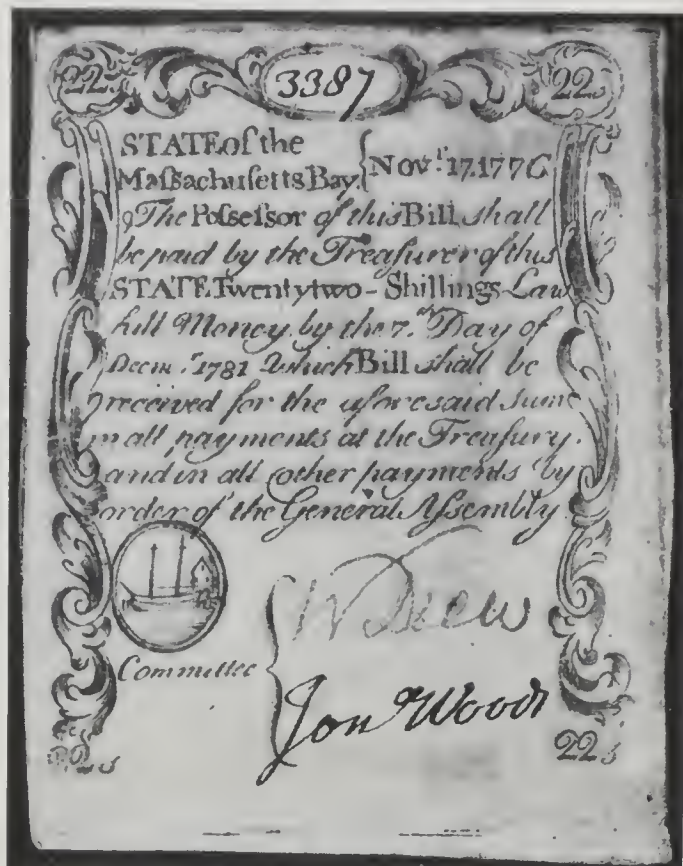 22s 3387 22s
STATE of the
Maſsachuſetts Bay { Novr. 17. 1776
The Poſseſsor of this Bill ſhall
be paid by the Treaſurer of this
STATE Twenty two - Shillings Law
full Money by the 7.th Day of
Decm.r 1781 Which Bill ſhall be
received for the aforesaid ſum
in all payments at the Treaſury.
and in all other payments by
order of the General Aſsembly
Committee
Drew
Jon Wood
22s 22s